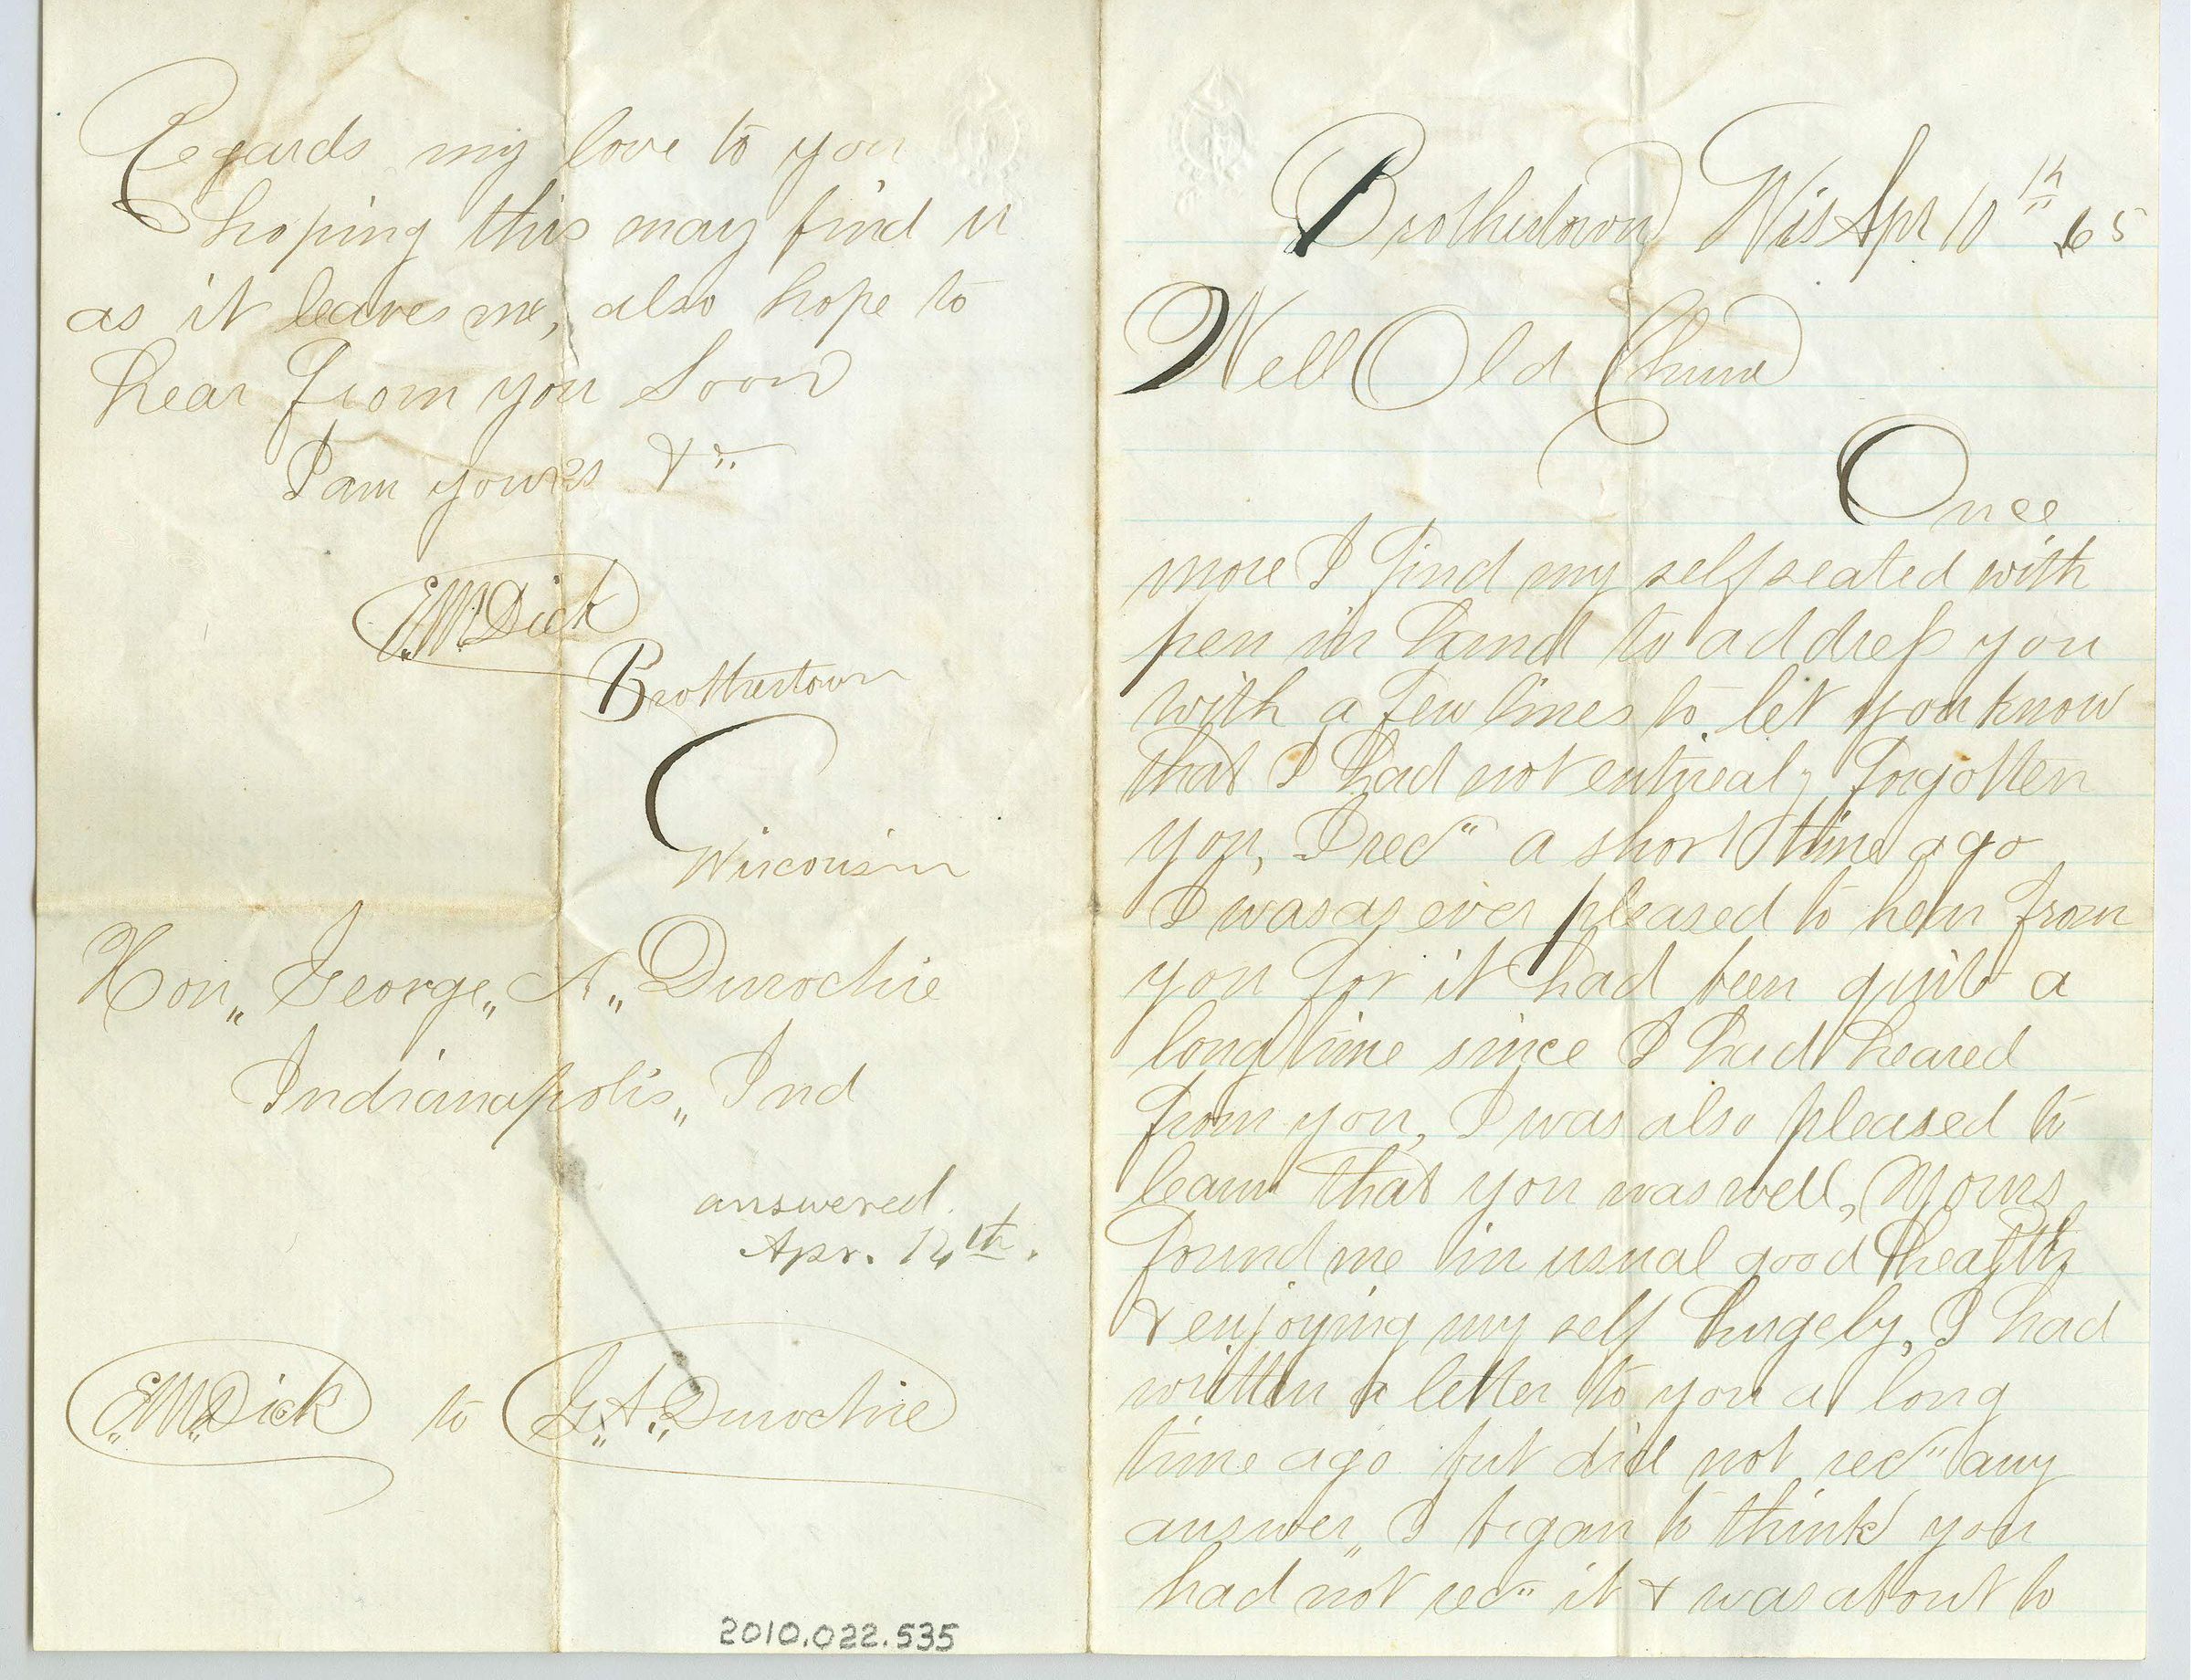 Brothertown Wis Apr 10th 65
Well Old Chum
Once
more I find my self seated with
pen in hand to address you
with a few lines to let you know
that I had not entirealy forgotten
you, I recd a short time ago
I was as ever pleased to hear from
you for it had been quite a
long time since I had heared
from you, I was also pleased to
learn that you was well, Yours
found me in usual good health
& enjoying my self hugely, I had
written a letter to you a long
time ago but did not recd any
answer, I began to think you
had not recd it & was about to
Regards my love to you
hoping this may find u
as it leaves me, also hope to
hear from you soon
I am yours &c
E. M. Dick
Brothertown
Wisconsin
Hon,, George,, A,, Durochie
Indianapolis,, Ind
answered.
Apr. 14th.
E. M. Dick to G. A. Durochie
2010.022.535